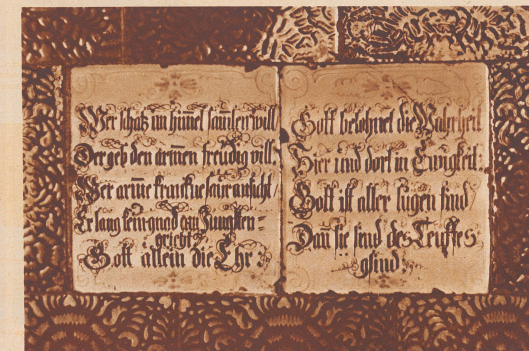 Wer schatz im himel samlen will
Der geb den armen freudig vill,
Wer arme krankne saur ansicht
Er lang kein gnad am Jungsten=
gricht
Gott allein die Ehr
Gott belohnet die Wahrheit
Hier und dort in Ewigkeit:
Gott ist aller lugen find
Dan sie sind des Teuffes
gsind